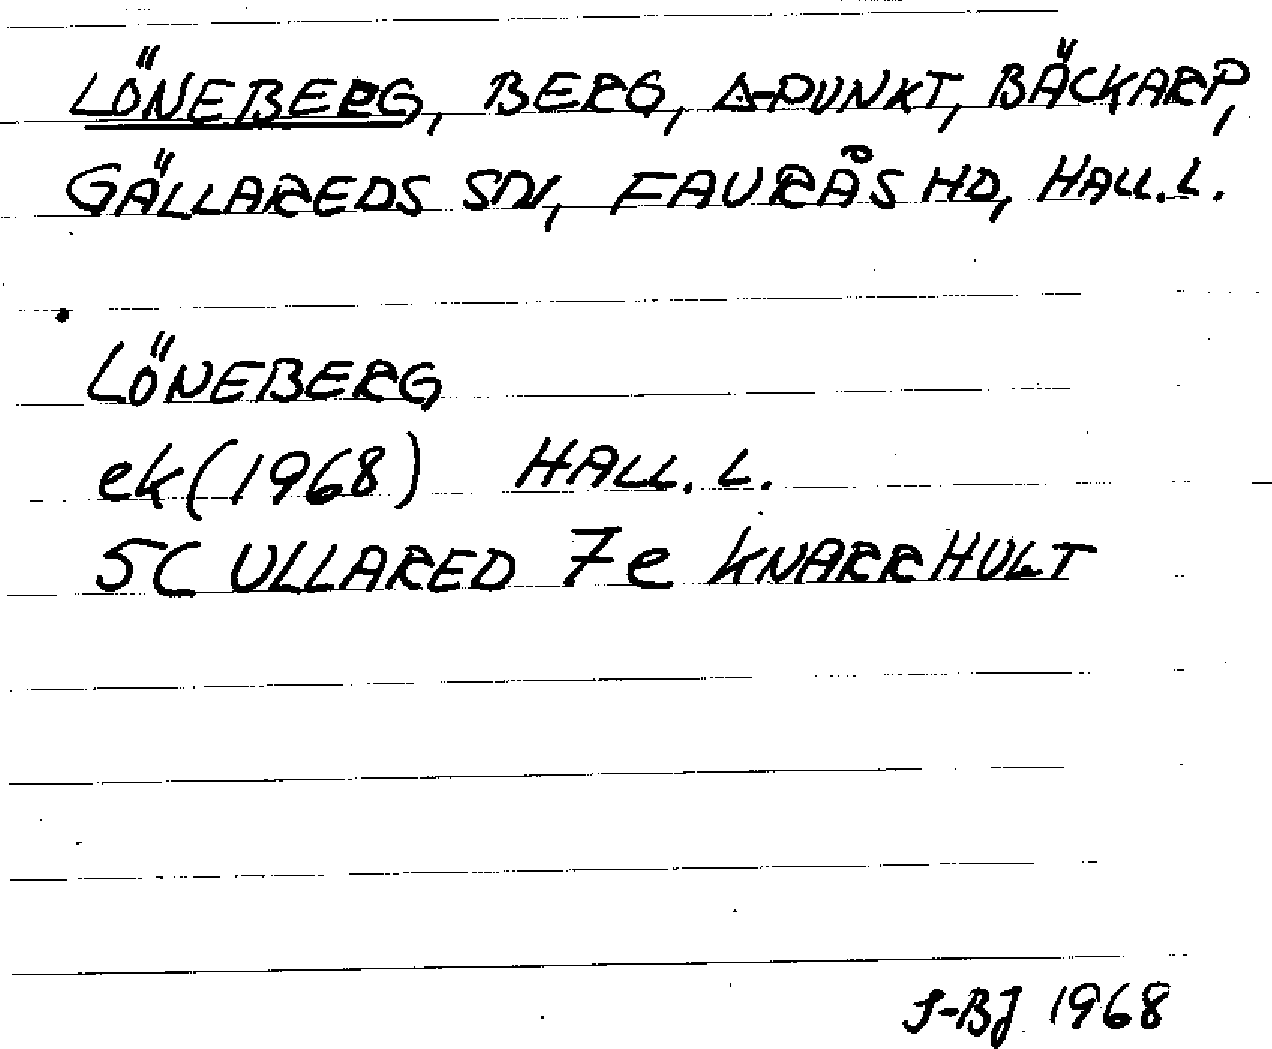 LÖNEBERG, BERG, Δ-PUNKT, BÄCKARP,
GÄLLAREDS SN, FAURÅS HD, HALL.L.
LÖNEBERG
ek(1968) HALL. L.
5C ULLARED 7e KNARRHULT
S-BJ 1968